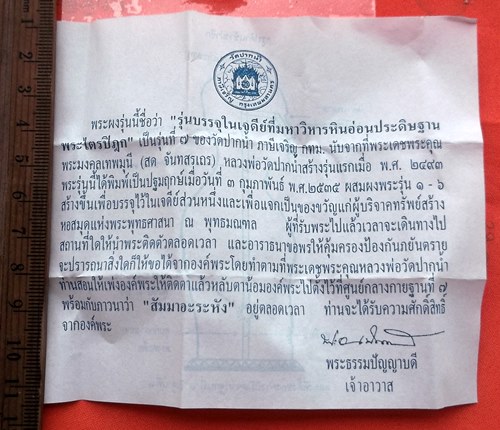 วัดปากน้ำ
ภาษีเจริญ กรุงเทพมหานคร
พระผงรุ่นนี้ชื่อว่า "รุ่นบรรจุในเจดีย์ที่มหาวิหารหินอ่อนประดิษฐาน
พระไตรปิฎก" เป็นรุ่นที่ ๗ ของวัดปากน้ำ ภาษีเจริญ กทม. นับจากที่พระเดชพระคุณ
พระมงคลเทพมุนี (สด จันทสรเถร) หลวงพ่อวัดปากน้ำสร้างรุ่นแรกเมื่อ พ.ศ. ๒๔๙๓
พระรุ่นนี้ได้พิมพ์เป็นปฐมฤกษ์เมื่อวันที่ ๓ กุมภาพันธ์ พ.ศ.๒๕๓๕ ผสมผงพระรุ่น ๑ - ๖
สร้างขึ้นเพื่อบรรจุไว้ในเจดีย์ส่วนหนึ่งและเพื่อแจกเป็นของขวัญแก่ผู้บริจาคทรัพย์สร้าง
หอสมุดแห่งพระพุทธศาสนา ณ พุทธมณฑล ผู้ที่รับพระไปแล้วเวลาจะเดินทางไป
สถานที่ใดให้นำพระติดตัวตลอดเวลา และอาราธนาขอพรให้คุ้มครองป้องกันภยันตราย
จะปรารถนาสิ่งใดก็ให้ขอได้จากองค์พระโดยทำตามที่พระเดชพระคุณหลวงพ่อวัดปากน้ำ
ท่านสอนให้เพ่งองค์พระให้ติดตาแล้วหลับตาน้อมองค์พระไปตั้งไว้ที่ศูนย์กลางกายฐานที่ ๗
พร้อมกับภาวนาว่า "สัมมาอะระหัง" อยู่ตลอดเวลา ท่านจะได้รับความศักดิ์สิทธิ์
จากองค์พระ
พระธรรมปัญญาบดี
เจ้าอาวาส
1
2
3
4
5
6
7
8
9
10
11